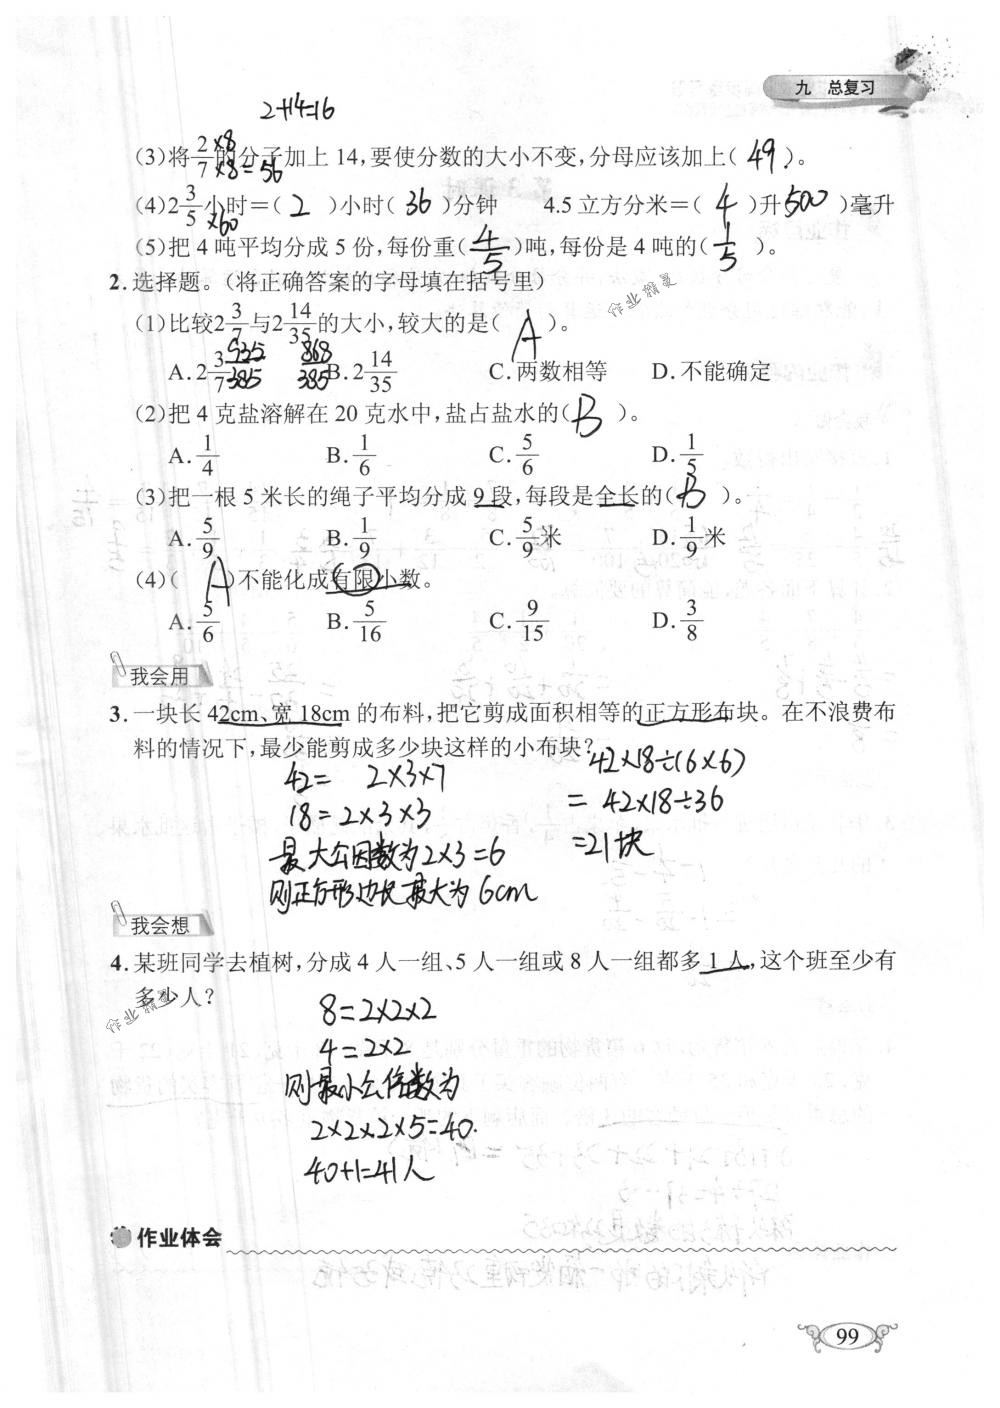 九 总复习
2+14=16
(3)将2/7的分子加上 14,要使分数的大小不变,分母应该加上( 49 )。
×8
×8=56
(4)2 3/5小时=( 2 )小时( 36 )分钟 4.5 立方分米=( 4 )升( 500 )毫升
×60
(5)把 4 吨平均分成 5 份,每份重( 4/5 )吨,每份是 4 吨的( 1/5 )。
2.选择题。(将正确答案的字母填在括号里)
作业精灵
(1)比较2 3/7与2 14/35的大小,较大的是( A )。
935/385 868/385
A.2 3/7 B.2 14/35 C.两数相等 D.不能确定
(2)把 4 克盐溶解在 20 克水中,盐占盐水的( B )。
A.1/4 B.1/6 C.5/6 D.1/5
(3)把一根 5 米长的绳子平均分成 9 段,每段是全长的( B )。
A.5/9 B.1/9 C.5/9米 D.1/9米
(4)( A )不能化成有限小数。
A.5/6 B.5/16 C.9/15 D.3/8
我会用
3.一块长 42cm、宽 18cm 的布料,把它剪成面积相等的正方形布块。在不浪费布
料的情况下,最少能剪成多少块这样的小布块?
42= 2×3×7
18=2×3×3
最大公因数为2×3=6
则正方形边长最大为6cm
42×18÷(6×6)
=42×18÷36
=21块
我会想
4.某班同学去植树,分成 4 人一组、5 人一组或 8 人一组都多 1 人,这个班至少有
多少人?
作业精灵
8=2×2×2
4=2×2
则最小公倍数为
2×2×2×5=40.
40+1=41人
作业体会
99